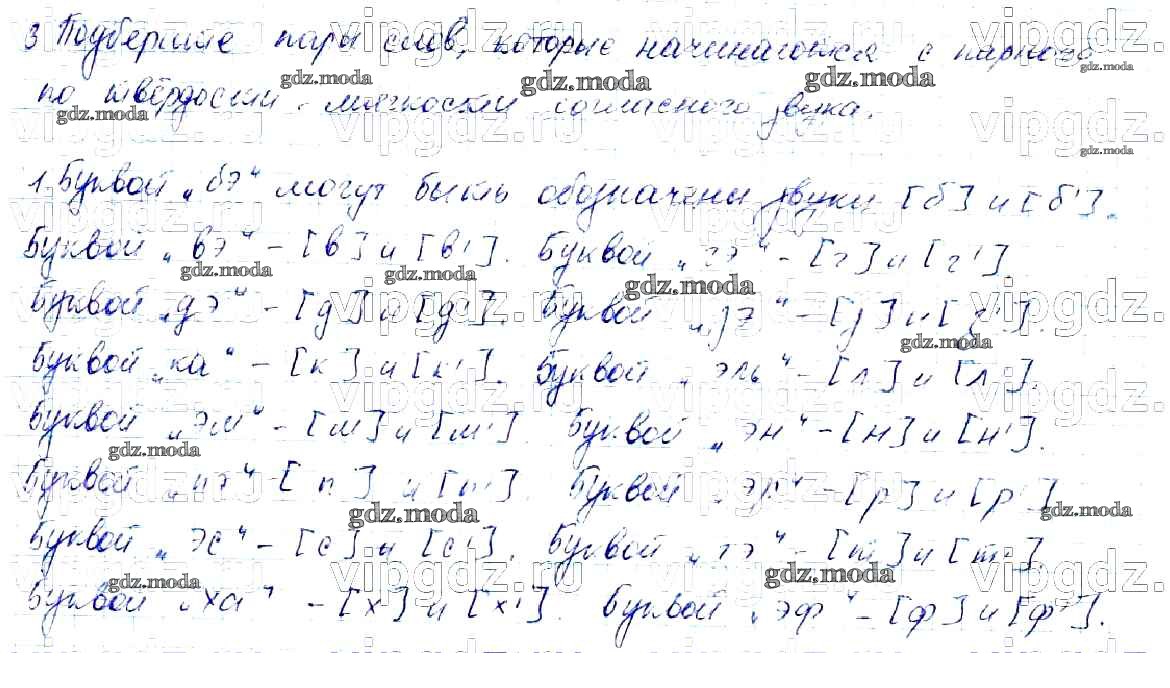 3 Подберите пары слов, которые начинаются с парного
по твёрдости - мягкости согласного звука.
1. Буквой „бэ“ могут быть обозначены звуки [б] и [б'].
Буквой „вэ“ - [в] и [в']. Буквой „гэ“ - [г] и [г'].
Буквой „дэ“ - [д] и [д']. Буквой „зэ“ - [з] и [з'].
Буквой „ка“ - [к] и [к']. Буквой „эль“ - [л] и [л'].
Буквой „эм“ - [м] и [м']. Буквой „эн“ - [н] и [н'].
Буквой „пэ“ - [п] и [п']. Буквой „эр“ - [р] и [р'].
Буквой „эс“ - [с] и [с']. Буквой „тэ“ - [т] и [т'].
Буквой „ха“ - [х] и [х']. Буквой „эф“ - [ф] и [ф'].
vipgdz.ru
gdz.moda